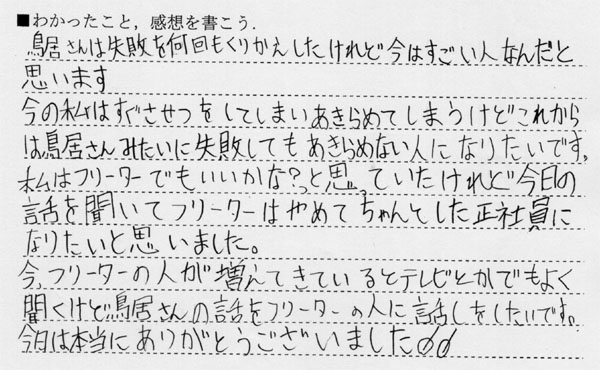 ■わかったこと，感想を書こう．
鳥居さんは失敗を何回もくりかえしたけれど今はすごい人なんだと
思います
今の私はすぐさせつをしてしまいあきらめてしまうけどこれから
は鳥居さんみたいに失敗してもあきらめない人になりたいです。
私はフリーターでもいいかな?っと思っていたけれど今日の
話を聞いてフリーターはやめてちゃんとした正社員に
なりたいと思いました。
今、フリーターの人が増えてきているとテレビとかでもよく
聞くけど鳥居さんの話をフリーターの人に話しをしたいです。
今日は本当にありがとうございました